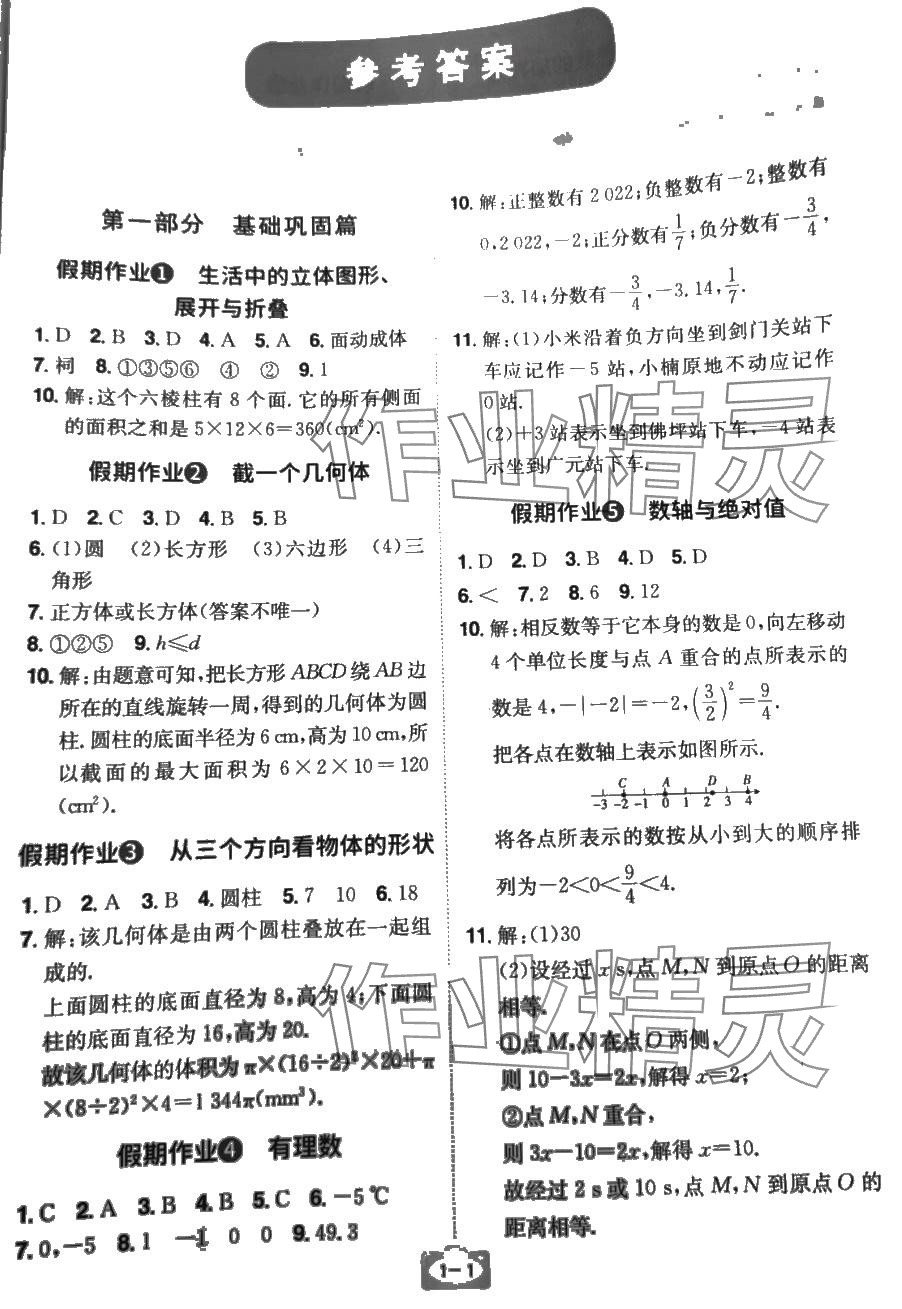 参考答案
第一部分 基础巩固篇
假期作业❶ 生活中的立体图形、
展开与折叠
1. D 2. B 3. D 4. A 5. A 6. 面动成体
7. 祠 8. ①③⑤⑥ ④ ② 9. 1
10. 解:这个六棱柱有 8 个面. 它的所有侧面
的面积之和是 5×12×6=360(cm²).
假期作业❷ 截一个几何体
1. D 2. C 3. D 4. B 5. B
6. (1)圆 (2)长方形 (3)六边形 (4)三
角形
7. 正方体或长方体(答案不唯一)
8. ①②⑤ 9. h≤d
10. 解:由题意可知,把长方形 ABCD 绕 AB 边
所在的直线旋转一周,得到的几何体为圆
柱. 圆柱的底面半径为 6 cm,高为 10 cm,所
以截面的最大面积为 6×2×10=120
(cm²).
假期作业❸ 从三个方向看物体的形状
1. D 2. A 3. B 4. 圆柱 5. 7 10 6. 18
7. 解:该几何体是由两个圆柱叠放在一起组
成的.
上面圆柱的底面直径为 8,高为 4;下面圆
柱的底面直径为 16,高为 20.
故该几何体的体积为 π×(16÷2)²×20+π
×(8÷2)²×4=1 344π(mm³).
假期作业❹ 有理数
1. C 2. A 3. B 4. B 5. C 6. -5℃
7. 0,-5 8. 1 -1 0 0 9. 49.3
10. 解:正整数有 2 022;负整数有-2;整数有
0,2 022,-2;正分数有1/7;负分数有-3/4,
-3.14;分数有-3/4,-3.14,1/7.
11. 解:(1)小米沿着负方向坐到剑门关站下
车应记作-5 站,小楠原地不动应记作
0 站.
(2)+3 站表示坐到佛坪站下车,-4 站表
示坐到广元站下车.
假期作业❺ 数轴与绝对值
1. D 2. D 3. B 4. D 5. D
6. < 7. 2 8. 6 9. 12
10. 解:相反数等于它本身的数是 0,向左移动
4 个单位长度与点 A 重合的点所表示的
数是 4,-|-2|=-2,(3/2)²=9/4.
把各点在数轴上表示如图所示.
C A D B
-3 -2 -1 0 1 2 3 4
将各点所表示的数按从小到大的顺序排
列为-2<0<9/4<4.
11. 解:(1)30
(2)设经过 x s,点 M,N 到原点 O 的距离
相等.
①点 M,N 在点 O 两侧,
则 10-3x=2x,解得 x=2;
②点 M,N 重合,
则 3x-10=2x,解得 x=10.
故经过 2 s 或 10 s,点 M,N 到原点 O 的
距离相等.
1-1
作业精灵
作业精灵